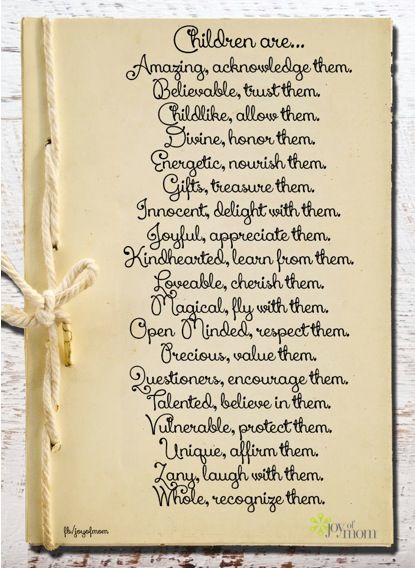 Children are...
Amazing, acknowledge them.
Believable, trust them.
Childlike, allow them.
Divine, honor them.
Energetic, nourish them.
Gifts, treasure them.
Innocent, delight with them.
Joyful, appreciate them.
Kindhearted, learn from them.
Loveable, cherish them.
Magical, fly with them.
Open Minded, respect them.
Precious, value them.
Questioners, encourage them.
Talented, believe in them.
Vulnerable, protect them.
Unique, affirm them.
Zany, laugh with them.
Whole, recognize them.
fb/joyofmom
joy of
mom